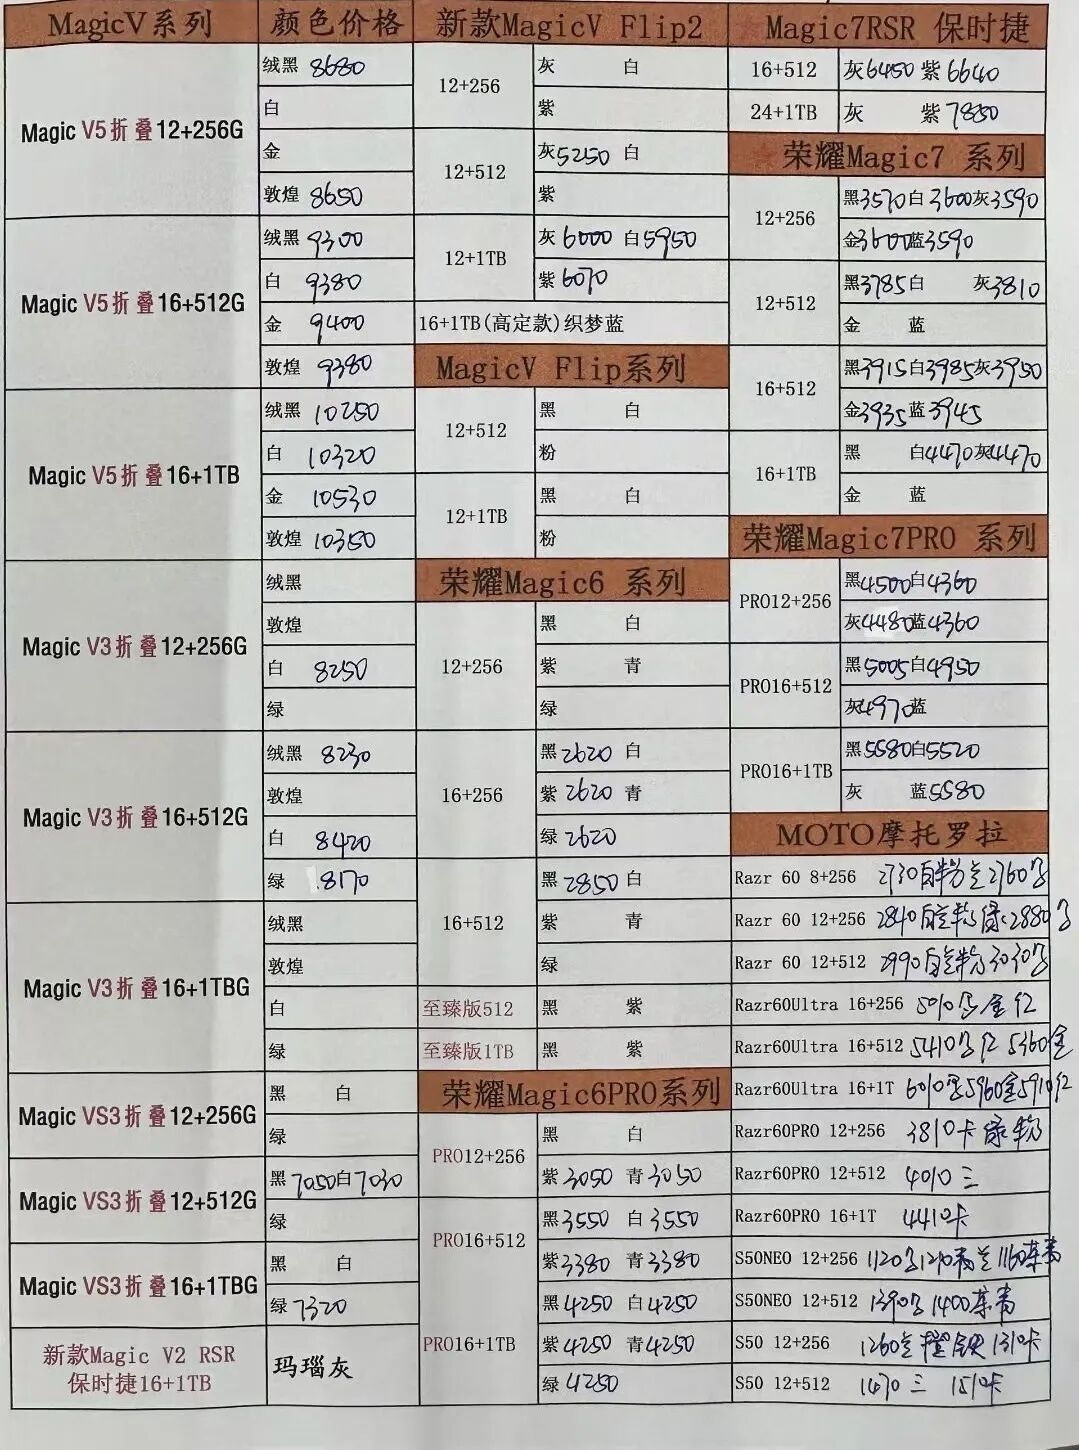 MagicV系列 颜色价格
Magic V5折叠12+256G
绒黑 8680
白
金
敦煌 8650
Magic V5折叠16+512G
绒黑 9300
白 9380
金 9400
敦煌 9380
Magic V5折叠16+1TB
绒黑 10250
白 10320
金 10530
敦煌 10350
Magic V3折叠12+256G
绒黑
敦煌
白 8250
绿
Magic V3折叠16+512G
绒黑 8230
敦煌
白 8420
绿 8170
Magic V3折叠16+1TBG
绒黑
敦煌
白
绿
Magic VS3折叠12+256G
黑 白
绿
Magic VS3折叠12+512G
黑7050白7030
绿
Magic VS3折叠16+1TBG
黑 白
绿7320
新款Magic V2 RSR
保时捷16+1TB
玛瑙灰
新款MagicV Flip2
12+256
灰 白
紫
12+512
灰5250 白
紫
12+1TB
灰6000 白5950
紫6070
16+1TB(高定款)织梦蓝
MagicV Flip系列
12+512
黑 白
粉
12+1TB
黑 白
粉
荣耀Magic6 系列
12+256
黑 白
紫 青
绿
16+256
黑2620 白
紫2620 青
绿2620
16+512
黑2850 白
紫 青
绿
至臻版512 黑 紫
至臻版1TB 黑 紫
荣耀Magic6PRO系列
PRO12+256
黑 白
紫3050 青3050
PRO16+512
黑3550 白3550
紫3380 青3380
PRO16+1TB
黑4250 白4250
紫4250 青4250
绿4250
Magic7RSR 保时捷
16+512 灰6450 紫6640
24+1TB 灰 紫7850
荣耀Magic7 系列
12+256
黑3570白3600灰3590
金3600蓝3590
12+512
黑3785白 灰3810
金 蓝
16+512
黑3915白3985灰3950
金3935蓝3945
16+1TB
黑 白4470灰4470
金 蓝
荣耀Magic7PRO 系列
PRO12+256
黑4500白4360
灰4480蓝4360
PRO16+512
黑5005白4950
灰4970蓝
PRO16+1TB
黑5580白5520
灰 蓝5580
MOTO摩托罗拉
Razr 60 8+256 2730 2760
Razr 60 12+256 2840 2880
Razr 60 12+512 2990 3030
Razr60Ultra 16+256 5010 金 红
Razr60Ultra 16+512 5410 红 5360金
Razr60Ultra 16+1T 6010 5960金5910红
Razr60PRO 12+256 3810卡 绿 粉
Razr60PRO 12+512 4010 三
Razr60PRO 16+1T 4410卡
S50NEO 12+256 1120 1210 1160
S50NEO 12+512 1390 1400
S50 12+256 1260 1310卡
S50 12+512 1470 三 1510卡